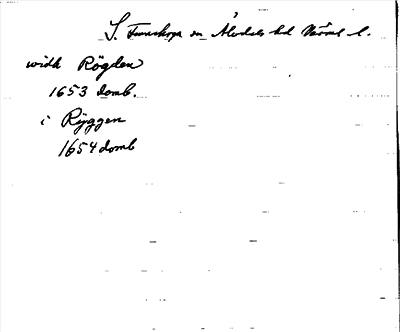 S. Finnskoga sn Älvdals hd Värml l.
widh Rögden
1653 domb.
i Rÿggen
1654 domb